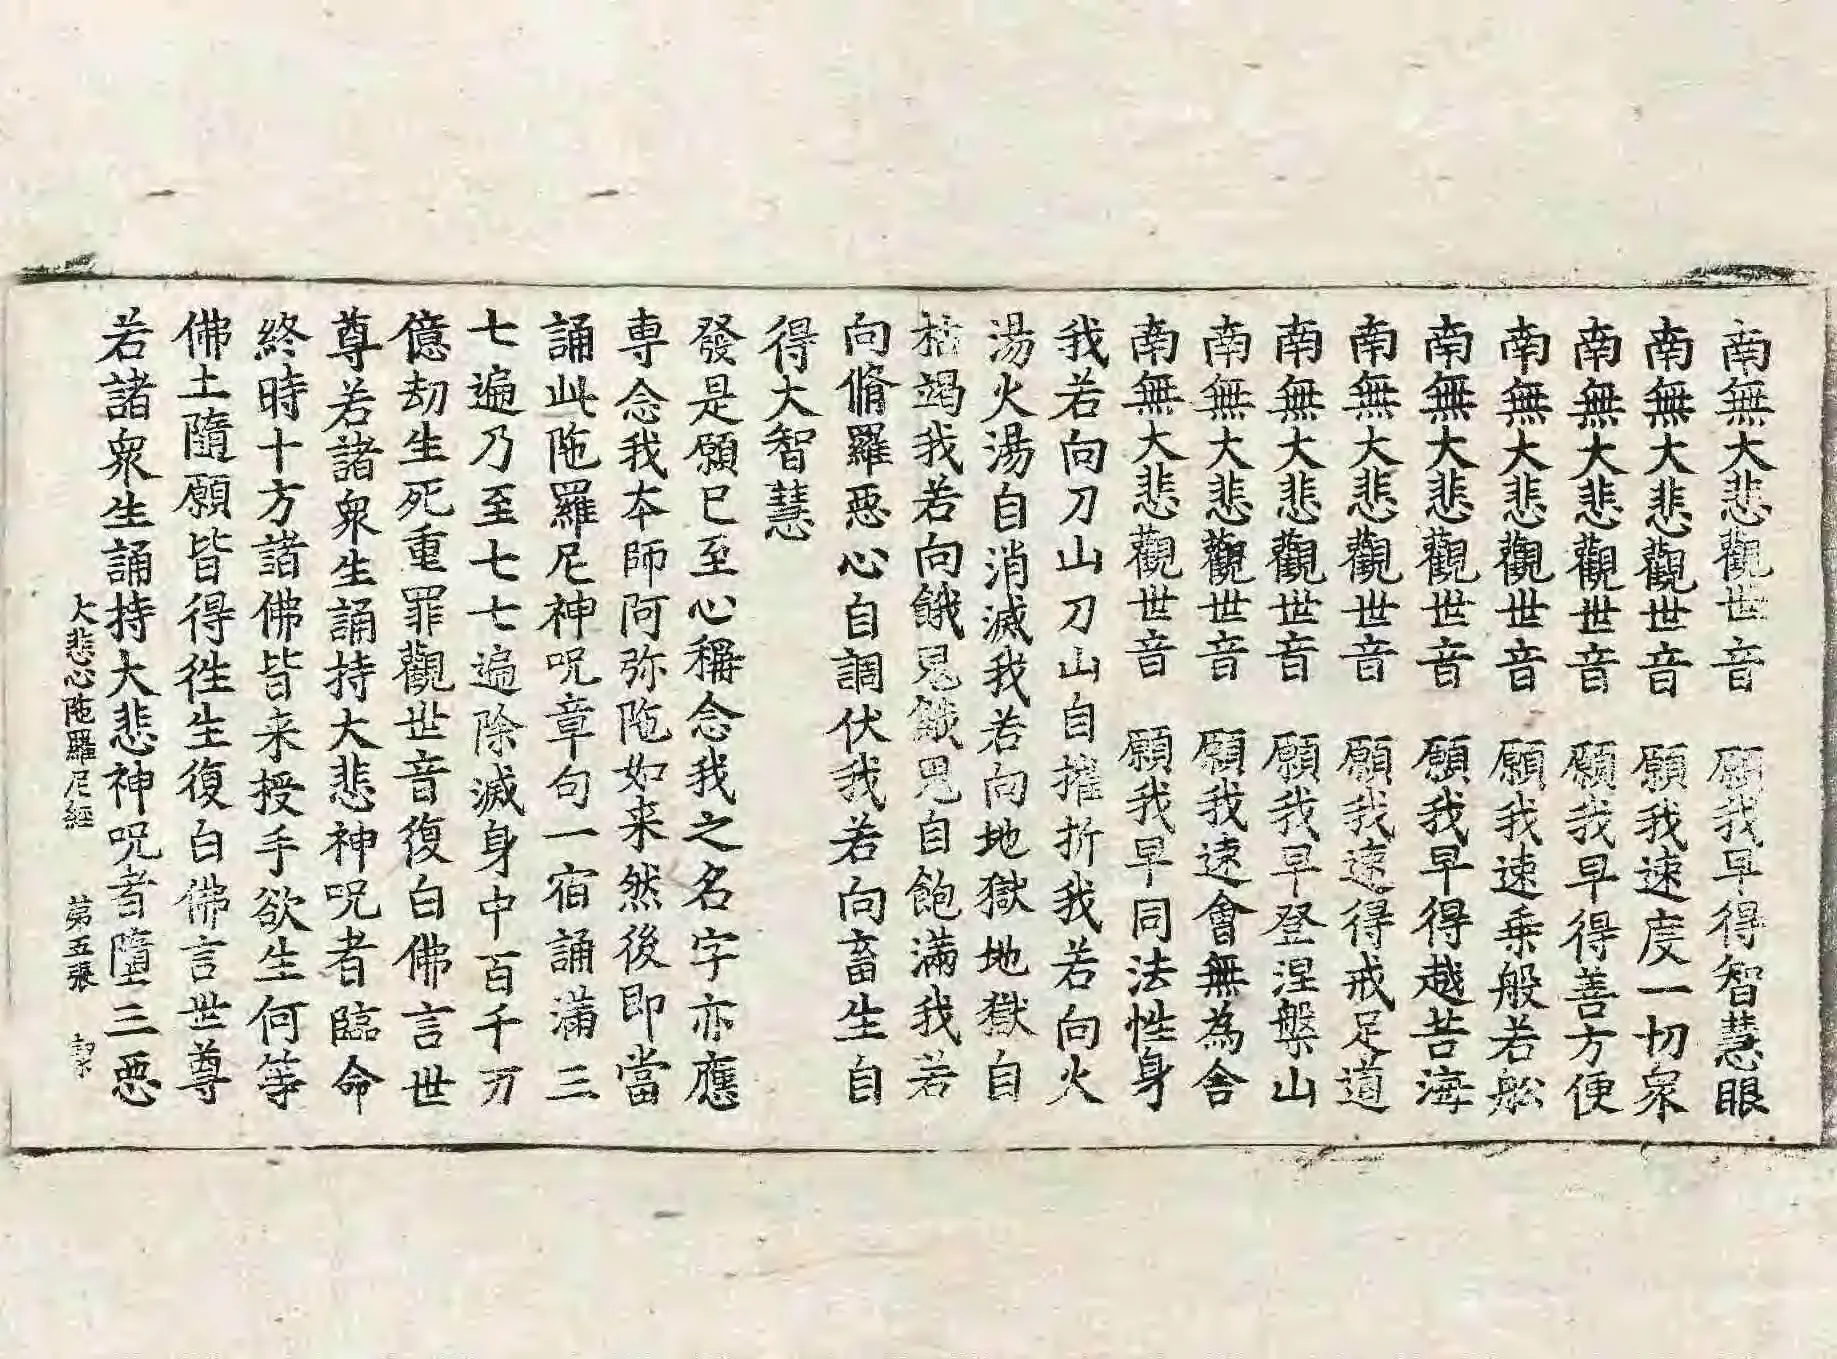 南無大悲觀世音　願我早得智慧眼
南無大悲觀世音　願我速度一切衆
南無大悲觀世音　願我早得善方便
南無大悲觀世音　願我速乗般若舩
南無大悲觀世音　願我早得越苦海
南無大悲觀世音　願我速得戒足道
南無大悲觀世音　願我早登涅槃山
南無大悲觀世音　願我速會無為舎
南無大悲觀世音　願我早同法性身
我若向刀山刀山自摧折我若向火
湯火湯自消滅我若向地獄地獄自
枯竭我若向餓鬼餓鬼自飽滿我若
向脩羅惡心自調伏我若向畜生自
得大智慧
發是願已至心稱念我之名字亦應
專念我本師阿弥陁如来然後即當
誦此陁羅尼神呪章句一宿誦滿三
七遍乃至七七遍除滅身中百千万
億劫生死重罪觀世音復白佛言世
尊若諸衆生誦持大悲神呪者臨命
終時十方諸佛皆来授手欲生何等
佛土隨願皆得徃生復白佛言世尊
若諸衆生誦持大悲神呪者墮三惡
大悲心陁羅尼經　第五張